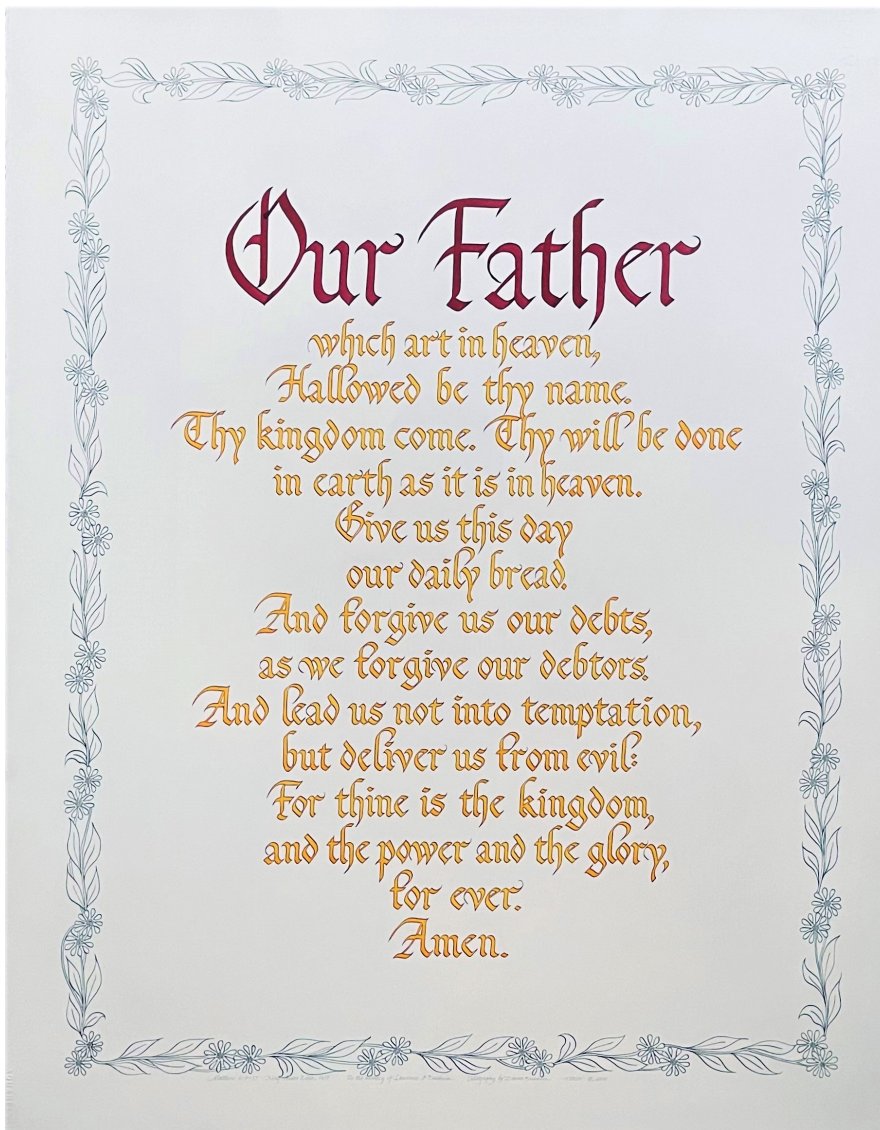 Our Father
which art in heaven,
Hallowed be thy name.
Thy kingdom come. Thy will be done
in earth as it is in heaven.
Give us this day
our daily bread.
And forgive us our debts,
as we forgive our debtors.
And lead us not into temptation,
but deliver us from evil:
For thine is the kingdom,
and the power and the glory,
for ever.
Amen.